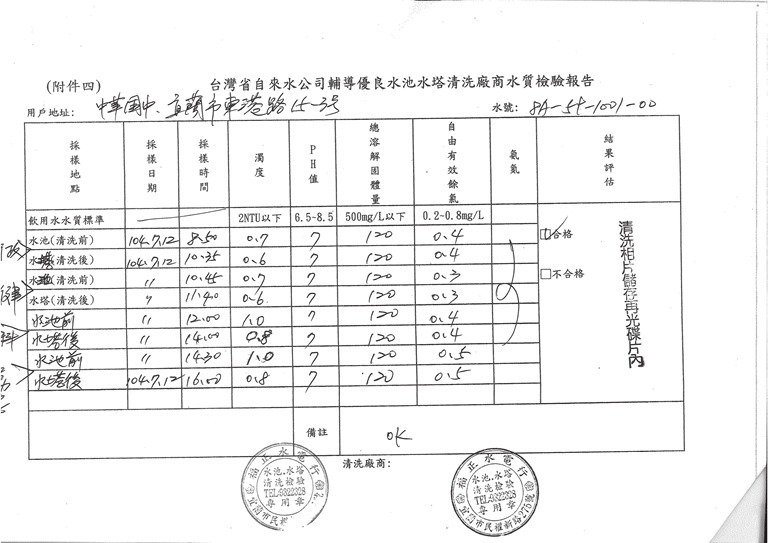 (附件四)
台灣省自來水公司輔導優良水池水塔清洗廠商水質檢驗報告
用戶地址: 中華國中、宜蘭市東港路15-3號 水號: 8A-54-1001-00
採樣地點 採樣日期 採樣時間 濁度 PH值 總溶解固體量 自由有效餘氯 氨氮 結果評估
飲用水水質標準 2NTU以下 6.5~8.5 500mg/L以下 0.2~0.8mg/L
水池(清洗前) 104.7.12 8.50 0.7 7 120 0.4 合格
水塔(清洗後) 104.7.12 10.35 0.6 7 120 0.4
水池(清洗前) 〃 10.45 0.7 7 120 0.3 不合格
水塔(清洗後) 〃 11.40 0.6 7 120 0.3
水池前 〃 12.00 1.0 7 120 0.4
水塔後 〃 14.00 0.8 7 120 0.4
水池前 〃 14.30 1.0 7 120 0.5
水塔後 104.7.12 16.00 0.8 7 120 0.5
清洗相片儲存再光碟片內
備註 OK
清洗廠商:
福正水電行
水池.水塔
清洗檢驗
TEL:9322328
專用章
宜蘭市民權
福正水電行
水池.水塔
清洗檢驗
TEL:9322328
專用章
宜蘭市民權新路275號